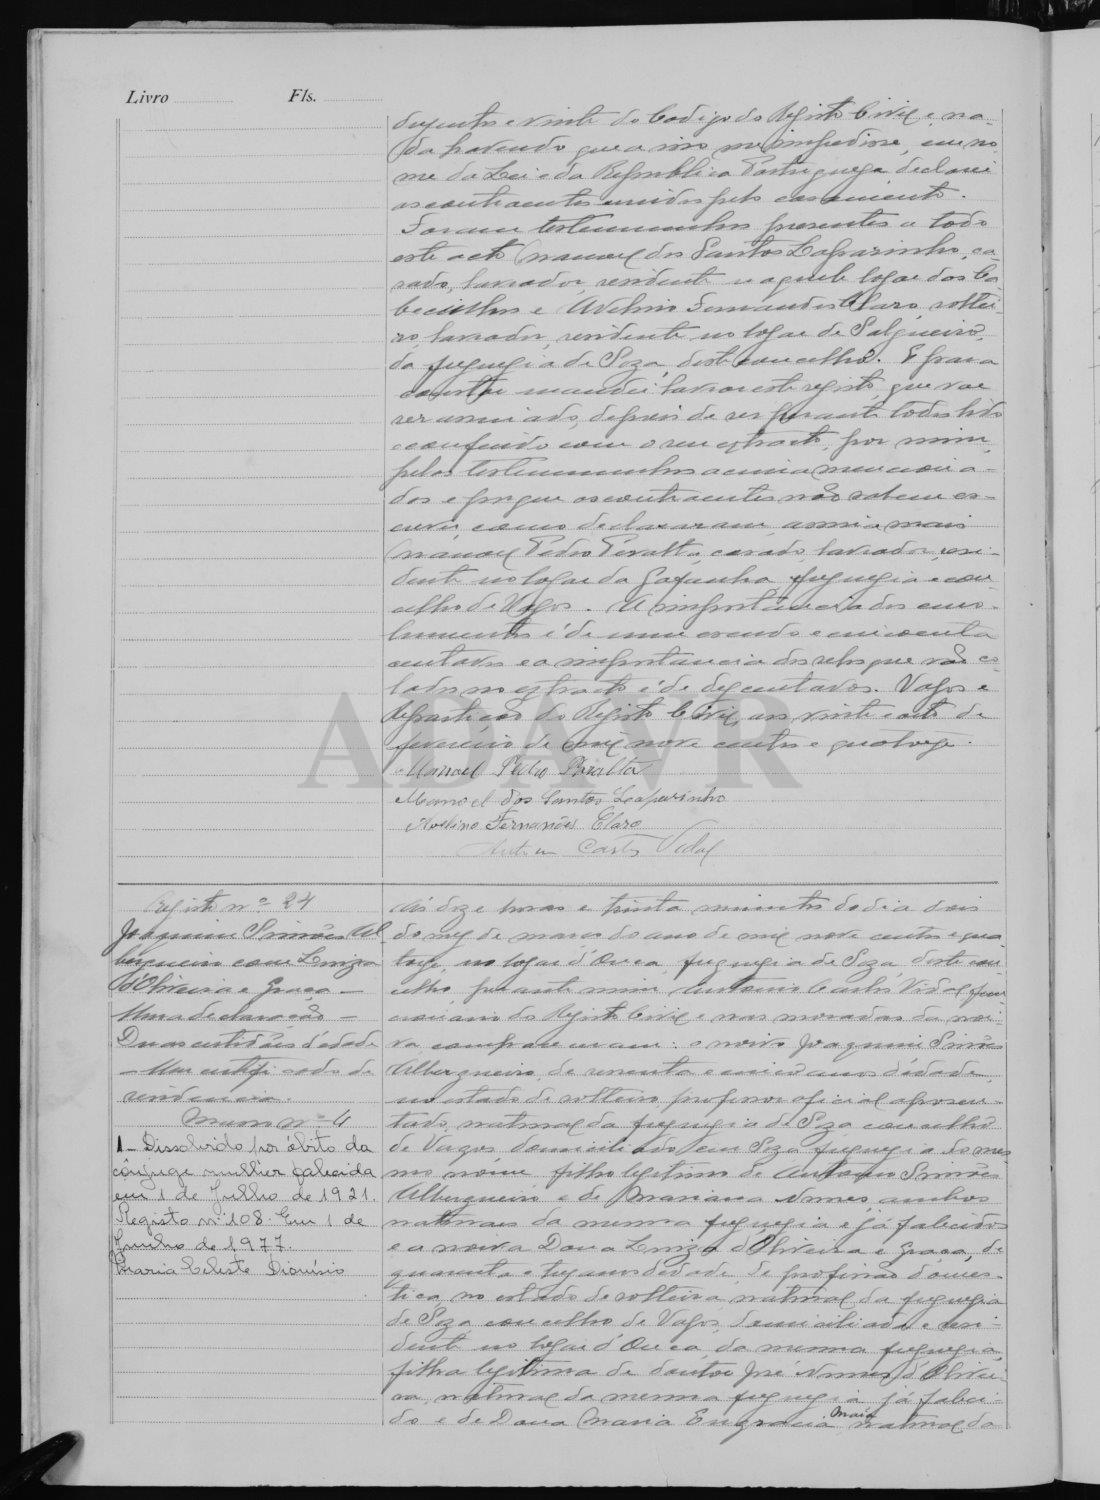 Livro Fls.
duzentos e vinte do Codigo do Registo Civil e na-
da havendo que a isso me impedisse, em no-
me da Lei e da Republica Portuguesa declarei
os contraentes unidos pelo casamento.
Foram testemunhas presentes a todo
este acto Manoel dos Santos Laparinho, ca-
sado, lavrador, residente naquele logar dos Ca-
becinhos e Avelino Fernandes Claro, soltei-
ro, lavrador, residente no logar de Salgueiro,
da freguezia de Soza, deste concelho. E para
constar mandei lavrar este registo, que vae
ser assinado, depois de ser perante todos lido
e conferido com o seu extracto, por mim,
pelas testemunhas acima menciona-
das e porque os contraentes não sabem es-
crever, como declararam, assina mais
Manoel Pedro Peralta, casado, lavrador, resi-
dente no logar da Gafanha, freguezia e con-
celho de Vagos. A importancia dos emo-
lumentos é de um escudo e cincoenta
centavos e a importancia dos selos que vão co-
lados no extracto é de dez centavos. Vagos e
Repartição do Registo Civil, aos vinte e oito de
fevereiro de mil nove centos e quatorze.
Manoel Pedro Peralta
Manoel dos Santos Laparinho
Avelino Fernandes Claro
Carlos Vidal
Registo nº 24
Joaquim Simões Al
bergueiro com Luiza
d'Oliveira e Graça —
Uma declaração —
Duas certidões d'edade
— Um certificado de
residencia.
Masso nº 4
1 – Dissolvido por óbito da
cônjuge mulher falecida
em 1 de Julho de 1921.
Registo nº 108. Em 1 de
Junho de 1977.
Maria Celeste Dionísio
Ás doze horas e trinta minutos do dia dois
do mez de março do ano de mil nove centos e qua
torze, no logar d'Ouca, freguezia de Soza, deste con
celho, perante mim Antonio Carlos Vidal, fun
cionario do Registo Civil e nas moradas da noi-
va compareceram: o noivo Joaquim Simões
Albergueiro, de sesenta e cinco anos d'edade,
no estado de solteiro, professor oficial aposen-
tado, natural da freguezia de Soza concelho
de Vagos, domiciliado em Soza freguezia do mes
mo nome, filho legitimo de Antonio Simões
Albergueiro e de Mariana Nunes ambos
naturaes da mesma freguezia e já falecidos
e a noiva Dona Luiza d'Oliveira e Graça, de
quarenta e tres anos d'edade, de profissão domes-
tica, no estado de solteira, natural da freguezia
de Soza concelho de Vagos, domiciliada e resi-
dente no logar d'Ouca, da mesma freguezia,
filha legitima de doutor José Nunes d'Olivei-
ra, natural da mesma freguezia, já faleci-
do e de Dona Maria Engracia Maia natural da
ADAVR